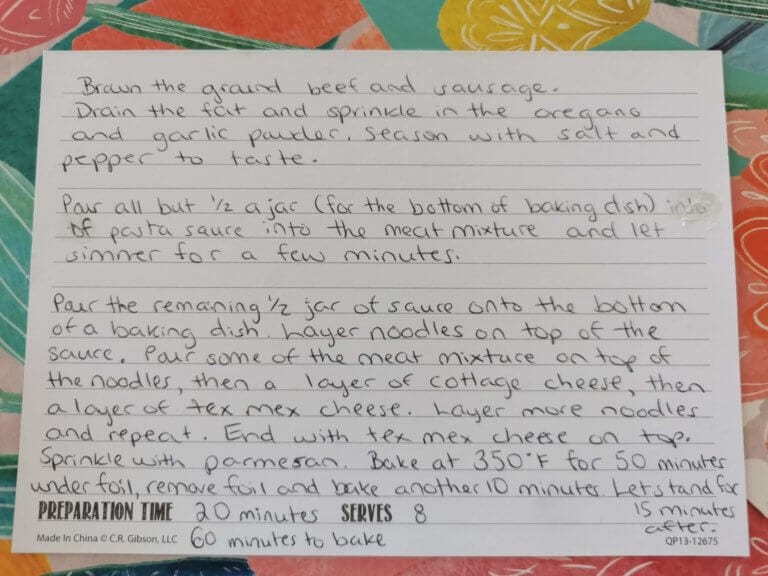 Brown the ground beef and sausage.
Drain the fat and sprinkle in the oregano
and garlic powder. Season with salt and
pepper to taste.
Pour all but 1/2 a jar (for the bottom of baking dish) into
of pasta sauce into the meat mixture and let
simmer for a few minutes.
Pour the remaining 1/2 jar of sauce onto the bottom
of a baking dish. Layer noodles on top of the
sauce. Pour some of the meat mixture on top of
the noodles, then a layer of cottage cheese, then
a layer of tex mex cheese. Layer more noodles
and repeat. End with tex mex cheese on top.
Sprinkle with parmesan. Bake at 350°F for 50 minutes
under foil, remove foil and bake another 10 minutes. Let stand for
15 minutes
after.
PREPARATION TIME 20 minutes SERVES 8
60 minutes to bake
Made In China © C.R. Gibson, LLC
QP13-12675